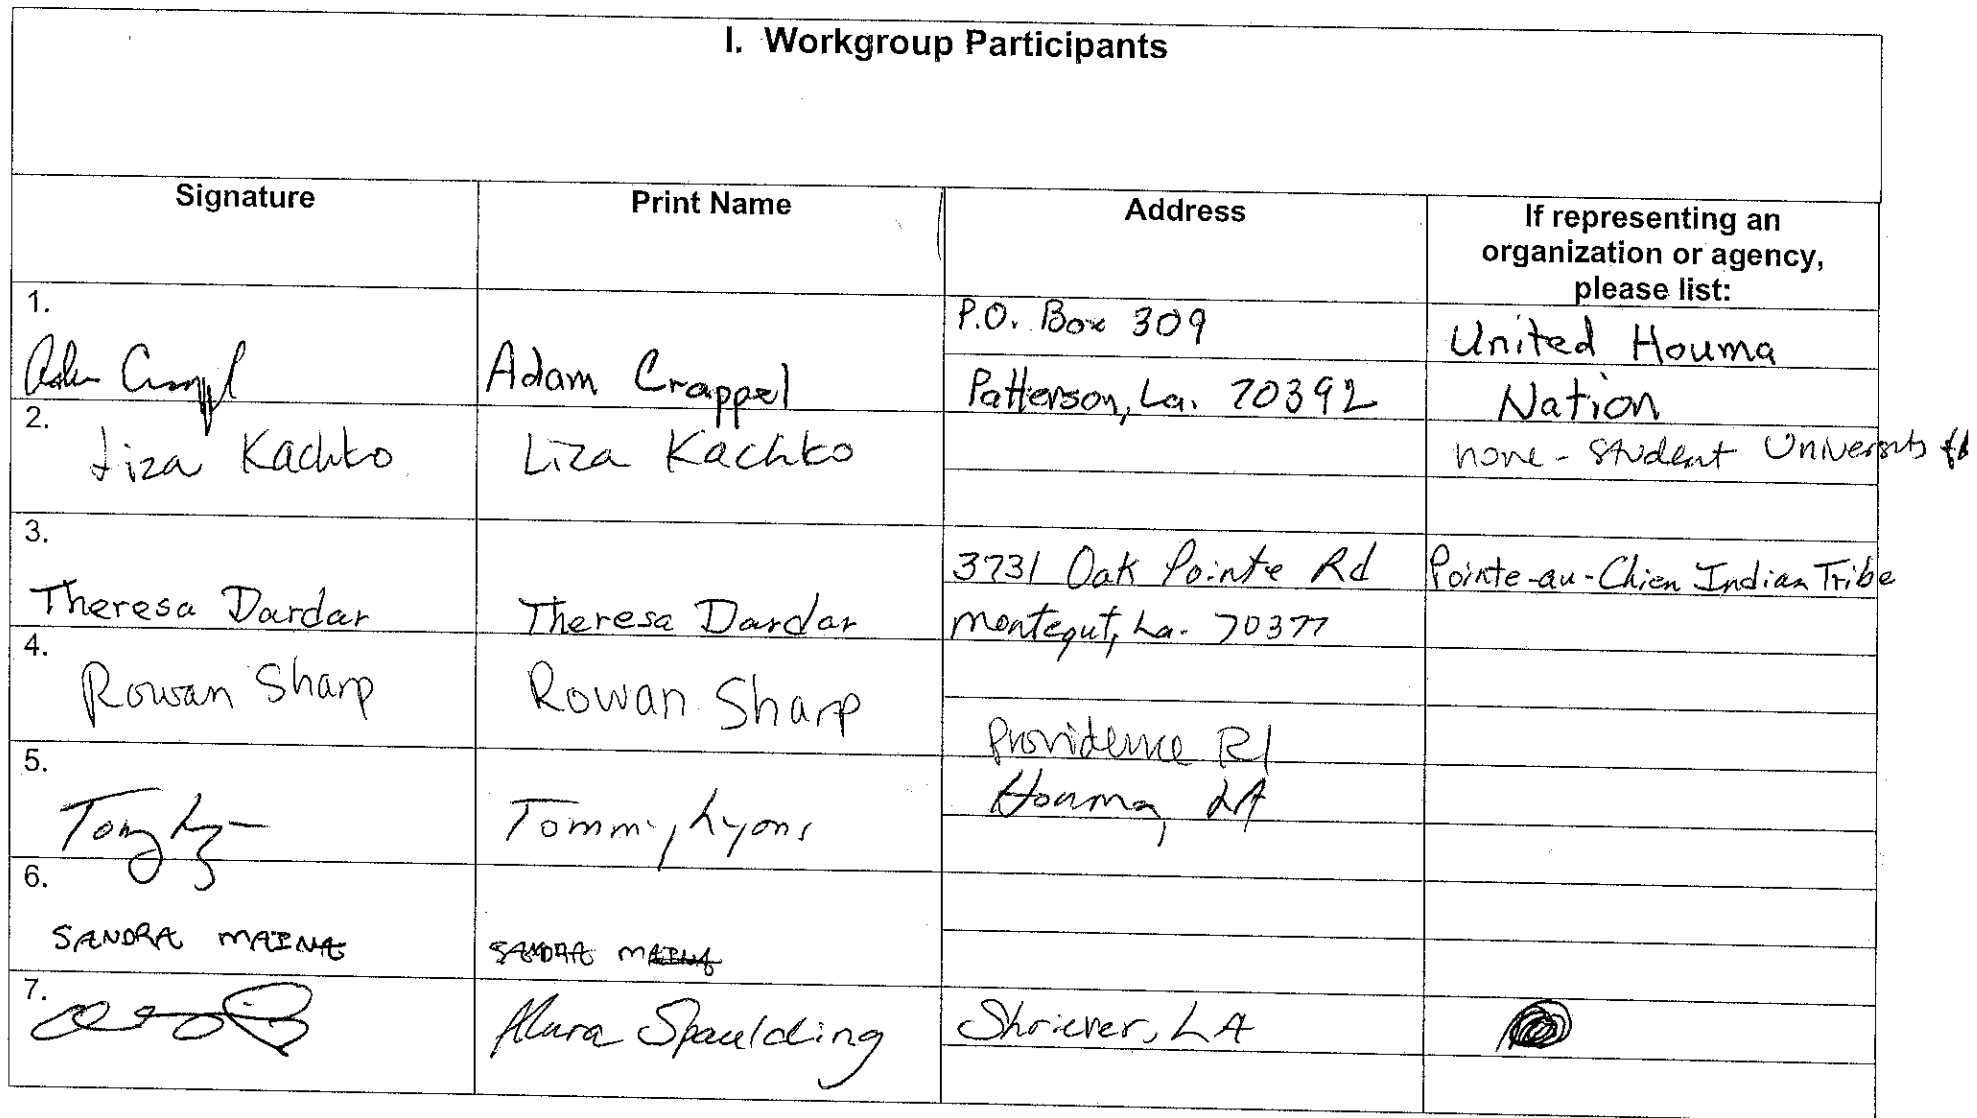 I. Workgroup Participants
Signature
Print Name
Address
If representing an
organization or agency,
please list:
1.
Adam Crappel
P.O. Box 309
Patterson, La. 70392
United Houma
Nation
2.
Liza Kachko
Liza Kachko
none - Student University
3.
Theresa Dardar
Theresa Dardar
3731 Oak Pointe Rd
Montegut, La. 70377
Pointe-au-Chien Indian Tribe
4.
Rowan Sharp
Rowan Sharp
Providence RI
5.
Tommy Lyons
Houma, LA
6.
SANDRA MAINA
SANDRA MAINA
7.
Spaulding
Shriever, LA